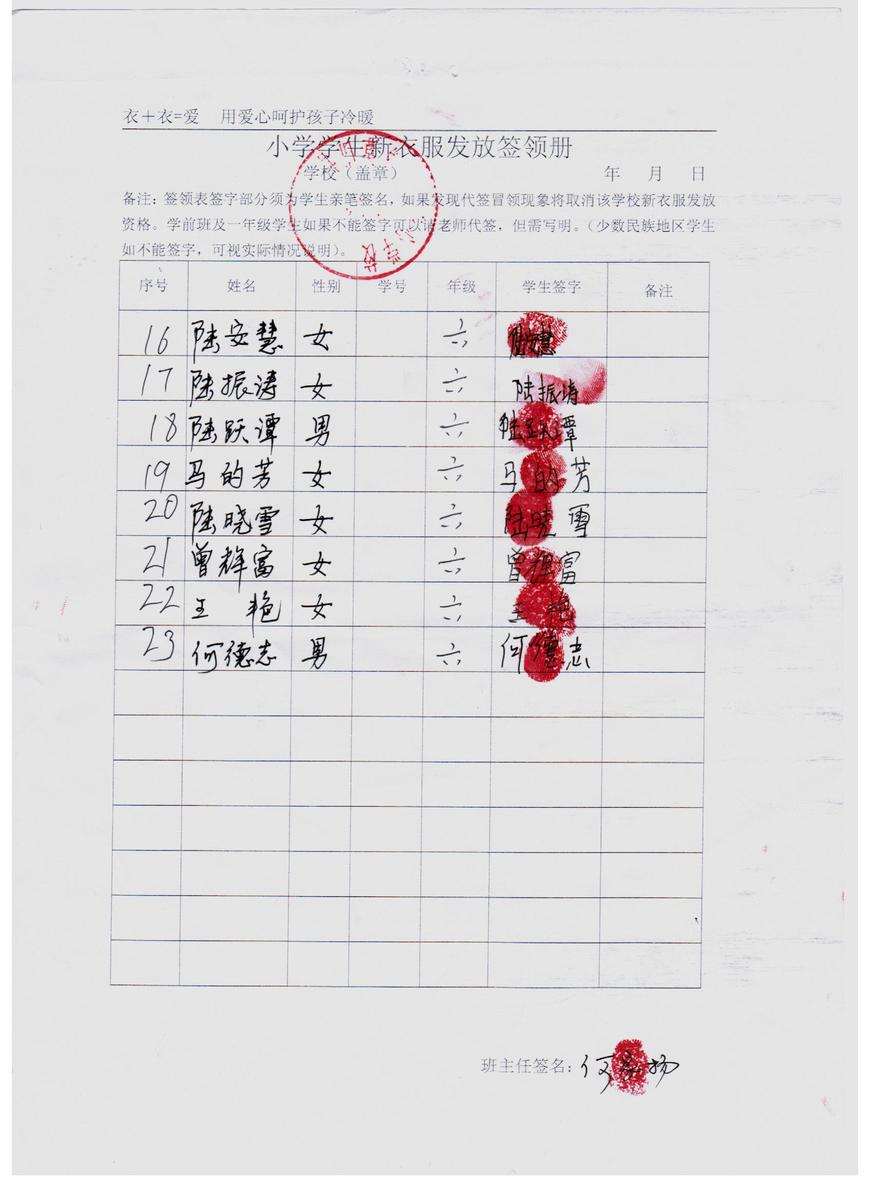 衣+衣=爱 用爱心呵护孩子冷暖
小学学生新衣服发放签领册
学校（盖章） 年 月 日
备注：签领表签字部分须为学生亲笔签名，如果发现代签冒领现象将取消该学校新衣服发放
资格。学前班及一年级学生如果不能签字可以请老师代签，但需写明。（少数民族地区学生
如不能签字，可视实际情况说明）。
序号 姓名 性别 学号 年级 学生签字 备注
16 陆安慧 女 六 陆安慧
17 陆振涛 女 六 陆振涛
18 陆跃谭 男 六 陆跃谭
19 马的芳 女 六 马的芳
20 陆晓雪 女 六 陆晓雪
21 曾辉富 女 六 曾辉富
22 王艳 女 六 王艳
23 何德志 男 六 何德志
班主任签名：何 扬